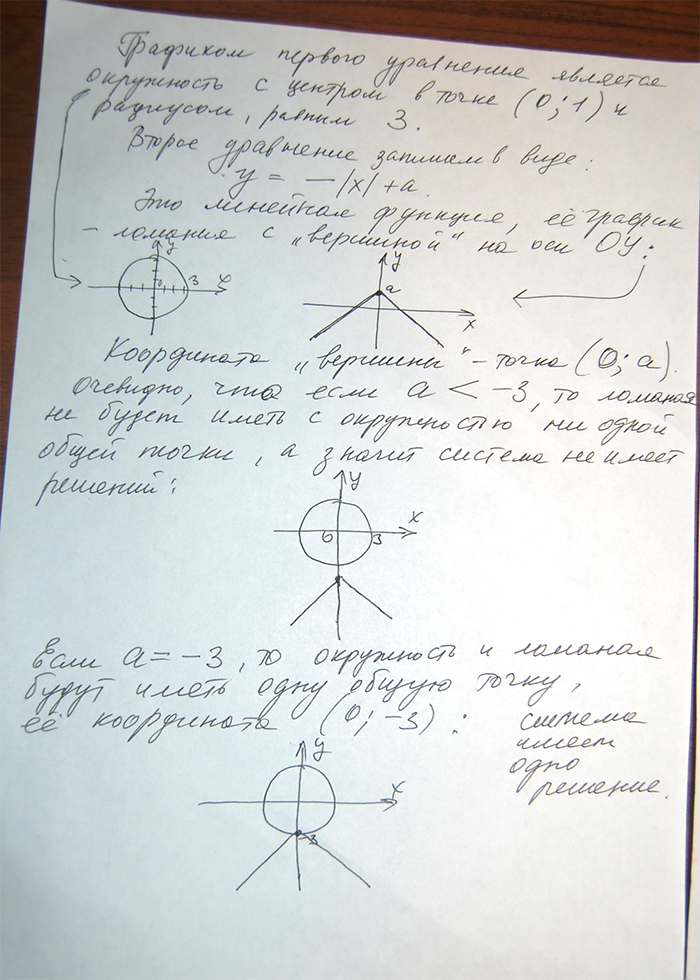 Графиком первого уравнения является
окружность с центром в точке (0;1) и
радиусом, равным 3.
Второе уравнение запишем в виде:
y = -|x| + a
Это линейная функция, её график
- ломаная с "вершиной" на оси OY:
y
x
0
3
y
a
x
Координата "вершины" - точка (0; a).
Очевидно, что если a < -3, то ломаная
не будет иметь с окружностью ни одной
общей точки, а значит система не имеет
решений:
y
x
0
3
Если a = -3, то окружность и ломаная
будут иметь одну общую точку,
её координата (0; -3):
система
имеет
одно
решение.
y
x
-3